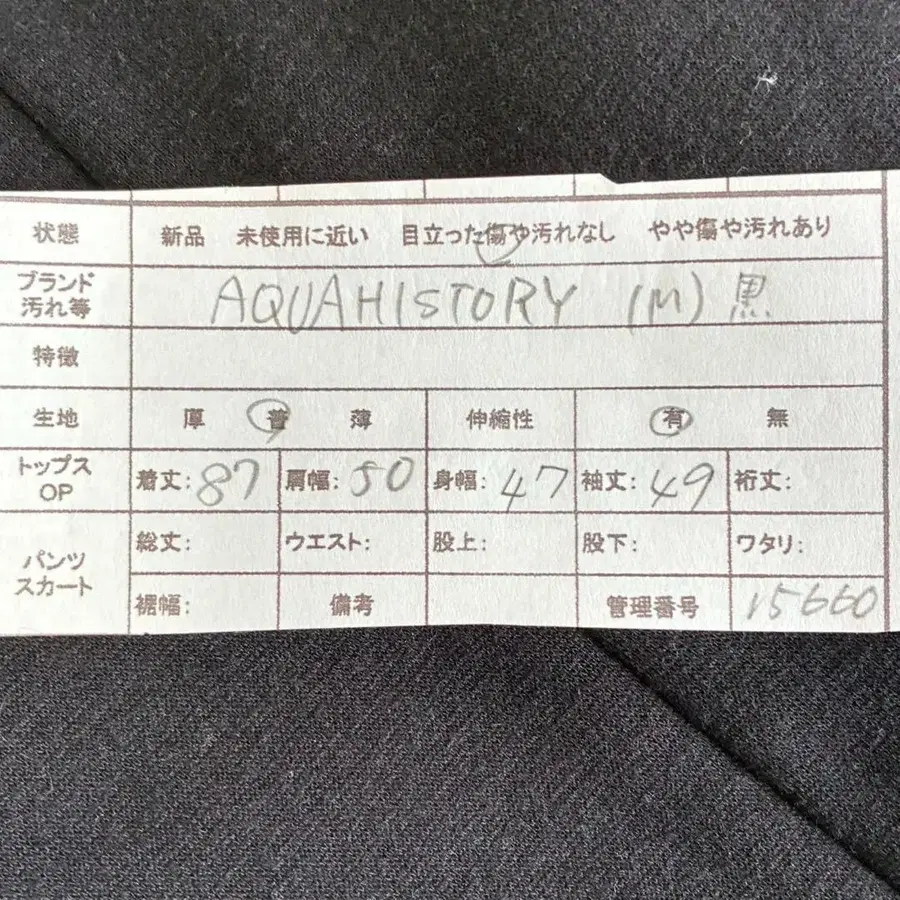 状態 新品 未使用に近い 目立った傷や汚れなし やや傷や汚れあり
ブランド
汚れ等 AQUAHISTORY (M) 黒
特徴
生地 厚 普 薄 伸縮性 有 無
トップス
OP 着丈: 87 肩幅: 50 身幅: 47 袖丈: 49 裄丈:
パンツ
スカート 総丈: ウエスト: 股上: 股下: ワタリ:
裾幅: 備考 管理番号 15660